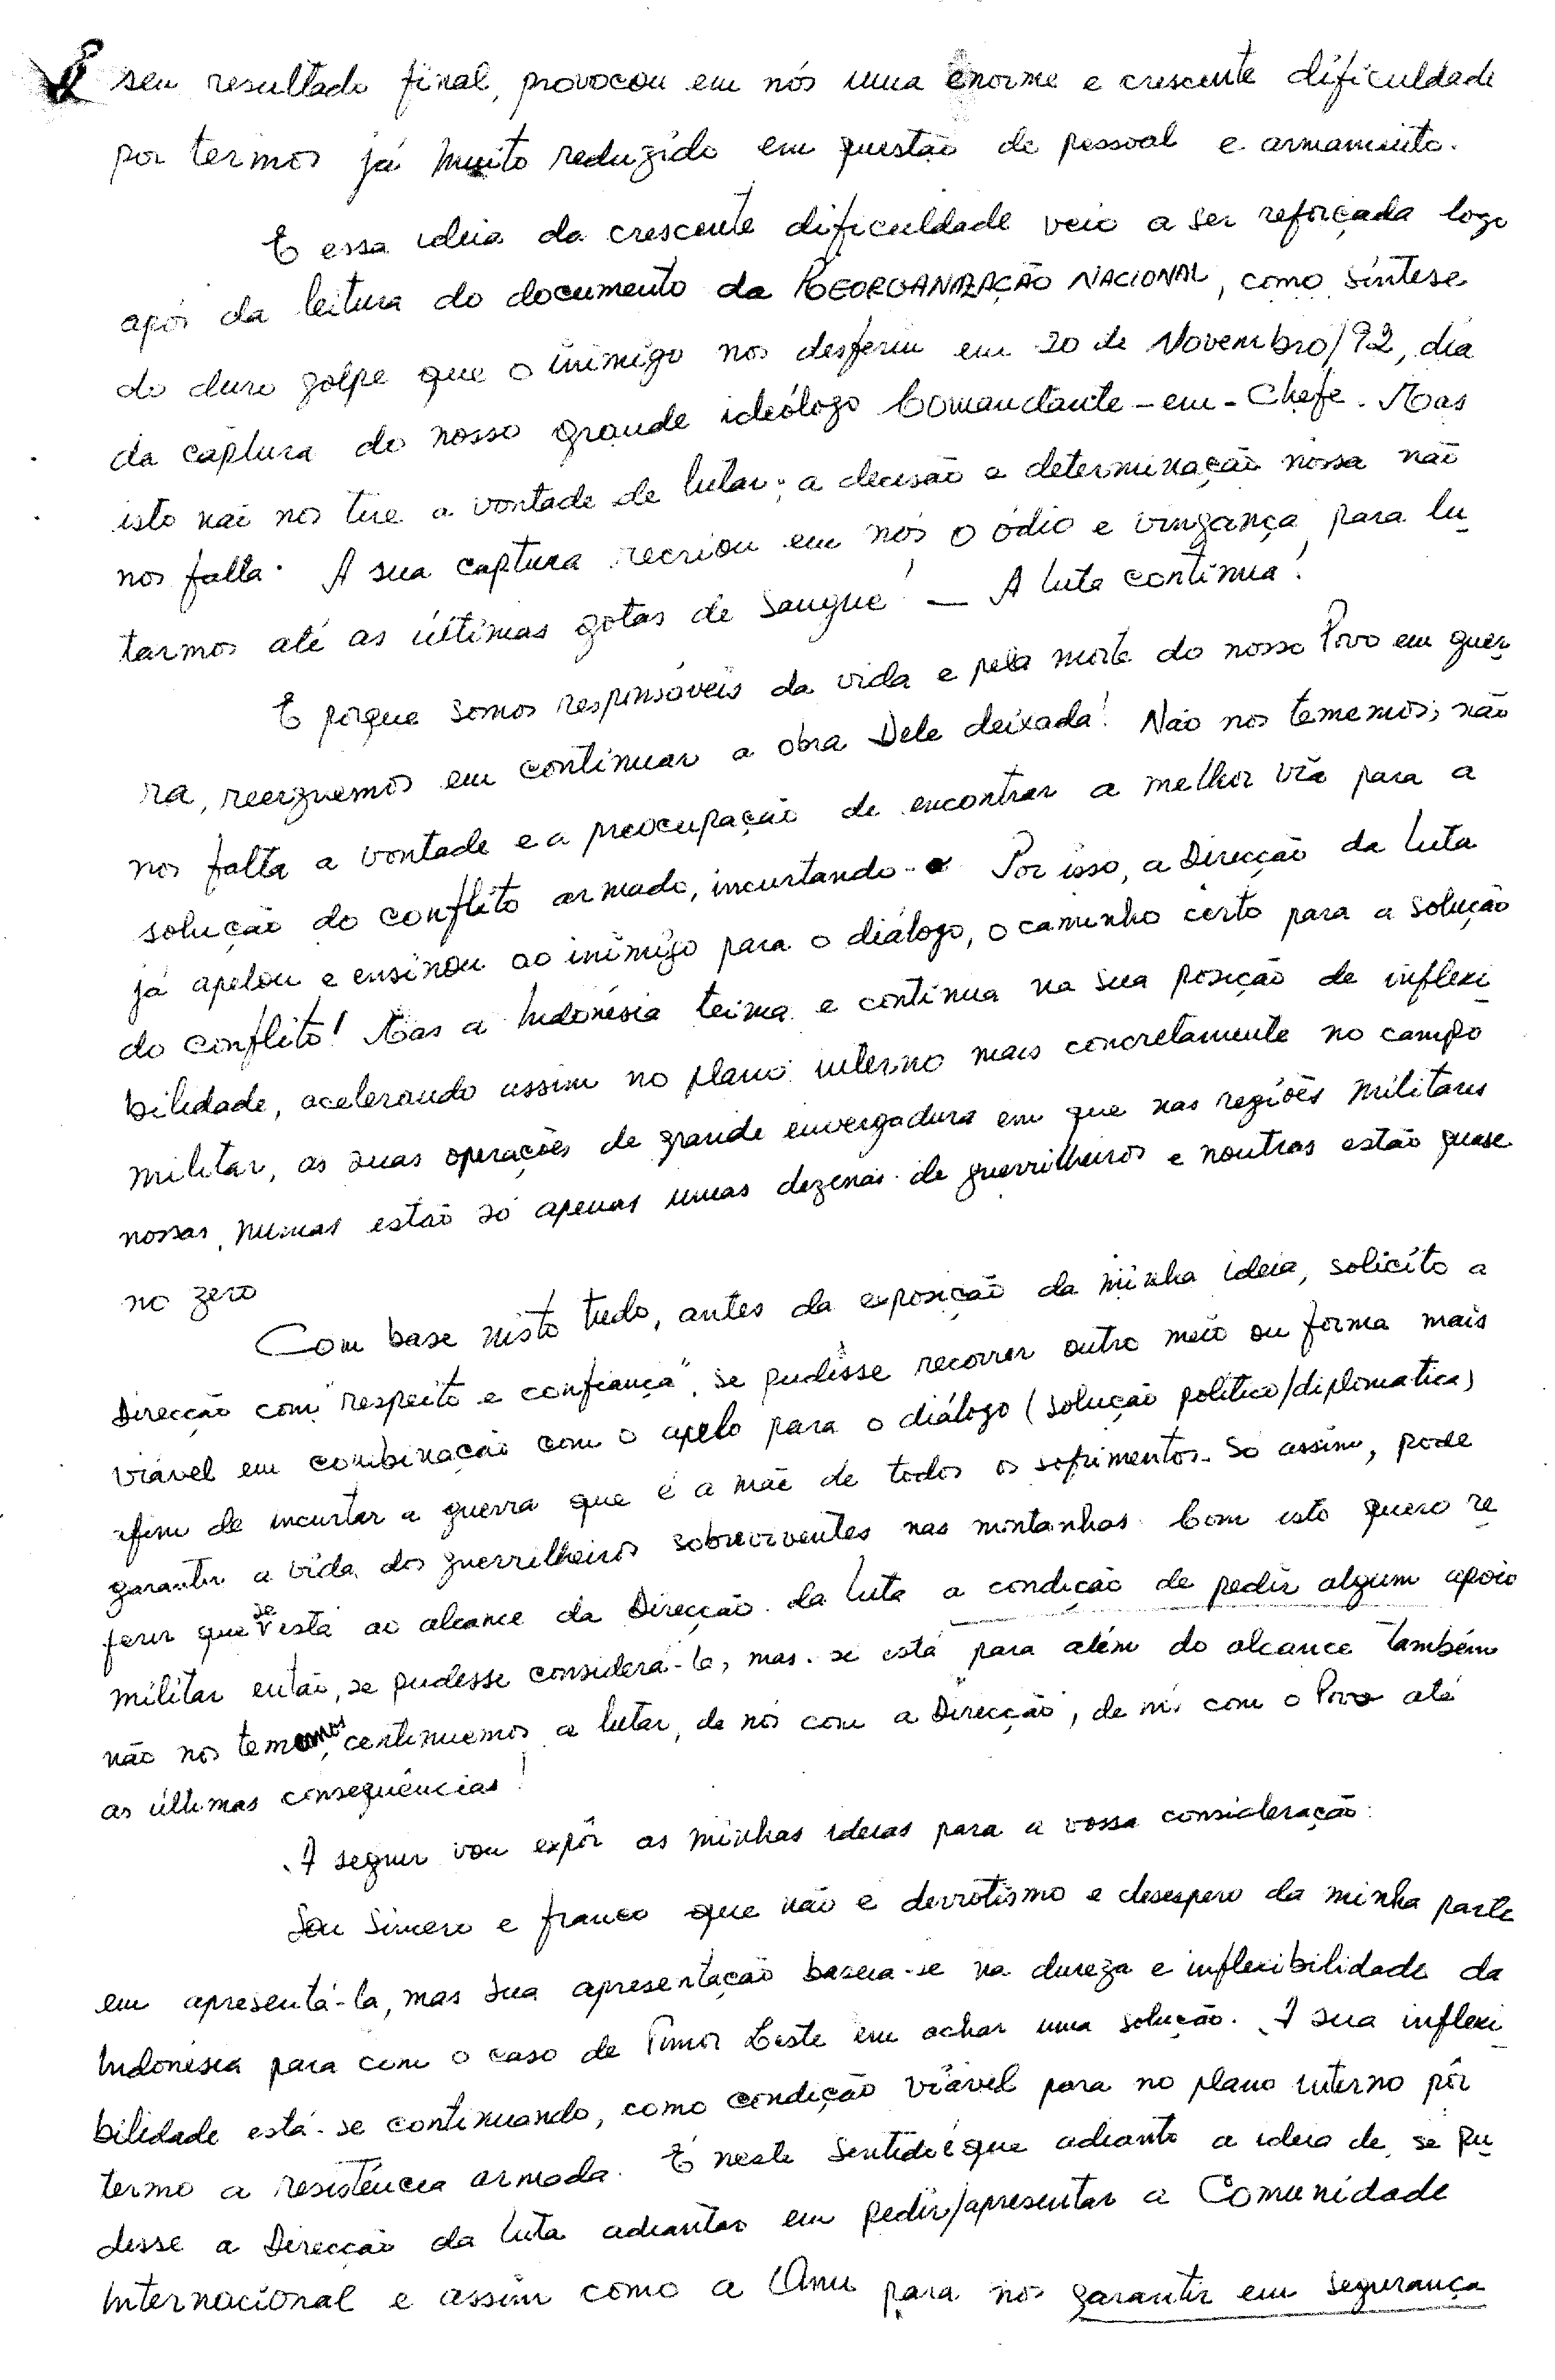 seu resultado final, provocou em nós uma enorme e crescente dificuldade
por termos já muito reduzido em questão de pessoal e armamento.
E essa ideia da crescente dificuldade veio a ser reforçada logo
após da leitura do documento da REORGANIZAÇÃO NACIONAL, como síntese
do duro golpe que o inimigo nos desferiu em 20 de Novembro/92, dia
da captura do nosso grande ideólogo Comandante-em-Chefe. Mas
isto não nos tire a vontade de lutar; a decisão e determinação nossa não
nos falta. A sua captura recriou em nós o ódio e vingança para lu-
tarmos até as últimas gotas de sangue! — A luta continua!
E porque somos responsáveis da vida e pela morte do nosso Povo em guer-
ra, reerguemos em continuar a obra Dele deixada! Não nos tememos; não
nos falta a vontade e a preocupação de encontrar a melhor via para a
solução do conflito armado, incurtando-o. Por isso, a Direcção da Luta
já apelou e ensinou ao inimigo para o diálogo, o caminho certo para a solução
do conflito! Mas a Indonésia teima e continua na sua posição de inflexi-
bilidade, acelerando assim no plano interno mais concretamente no campo
militar, as suas operações de grande envergadura em que nas regiões militares
nossas, numas estão só apenas umas dezenas de guerrilheiros e noutras estão quase
no zero
Com base nisto tudo, antes da exposição da minha ideia, solicíto a
Direcção com "respeito e confiança", se pudesse recorrer outro meio ou forma mais
viável em combinação com o apelo para o diálogo (solução político/diplomatica)
afim de incurtar a guerra que é a mãe de todos os sofrimentos. Só assim, pode
garantir a vida dos guerrilheiros sobreviventes nas montanhas. Com isto quero re-
ferir que se está ao alcance da Direcção da Luta a condição de pedir algum apoio
militar então, se pudesse considerá-la, mas se está para além do alcance também
não nos tememos, continuemos a lutar, de nós com a Direcção, de nós com o Povo até
as últimas consequências!
A seguir vou expôr as minhas ideias para a vossa consideração:
Sou sincero e franco que não é derrotismo e desespero da minha parte
em apresentá-la, mas sua apresentação baseia-se na dureza e inflexibilidade da
Indonésia para com o caso de Timor Leste em achar uma solução. A sua inflexi-
bilidade está-se continuando, como condição viável para no plano interno pôr
termo a resistência armada. E neste sentido é que adianto a ideia de, se pu-
desse a Direcção da Luta adiantar em pedir/apresentar a Comunidade
Internacional e assim como a Onu para nos garantir em segurança